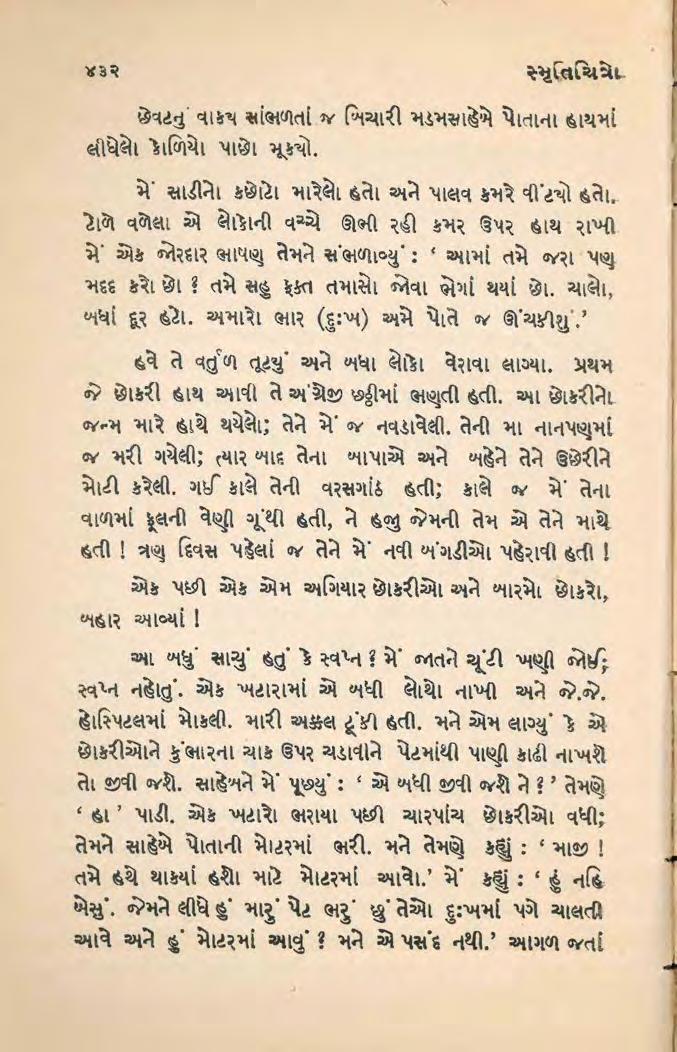 ૪૩૨ સ્મૃતિચિત્રો
છેવટનું વાક્ય સાંભળતાં જ બિચારી મડમસાહેબે પોતાના હાથમાં
લીધેલો કોળિયો પાછો મૂક્યો.
મેં સાડીનો કછોટો મારેલો હતો અને પાલવ કમરે વીંટ્યો હતો.
ટોળે વળેલા એ લોકોની વચ્ચે ઊભી રહી કમર ઉપર હાથ રાખી
મેં એક જોરદાર ભાષણ તેમને સંભળાવ્યું : ‘ આમાં તમે જરા પણ
મદદ કરો છો ? તમે સહુ ફક્ત તમાસો જોવા ભેગાં થયાં છો. ચાલો,
બધાં દૂર હટો. અમારો ભાર (દુઃખ) અમે પોતે જ ઊંચકીશું.’
હવે તે વર્તુળ તૂટ્યું અને બધા લોકો વેરાવા લાગ્યા. પ્રથમ
જે છોકરી હાથ આવી તે અંગ્રેજી છઠ્ઠીમાં ભણતી હતી. આ છોકરીનો
જન્મ મારે હાથે થયેલો; તેને મેં જ નવડાવેલી. તેની મા નાનપણમાં
જ મરી ગયેલી; ત્યાર બાદ તેના બાપાએ અને બહેને તેને ઉછેરીને
મોટી કરેલી. ગઈ કાલે તેની વરસગાંઠ હતી; કાલે જ મેં તેના
વાળમાં ફૂલની વેણી ગૂંથી હતી, ને હજુ જેમની તેમ એ તેને માથે
હતી ! ત્રણ દિવસ પહેલાં જ તેને મેં નવી બંગડીઓ પહેરાવી હતી !
એક પછી એક એમ અગિયાર છોકરીઓ અને બારમો છોકરો,
બહાર આવ્યાં !
આ બધું સાચું હતું કે સ્વપ્ન ? મેં જાતને ચૂંટી ખણી જોઈ;
સ્વપ્ન નહોતું. એક ખટારામાં એ બધી લોથો નાખી અને જે.જે.
હોસ્પિટલમાં મોકલી. મારી અક્કલ ટૂંકી હતી. મને એમ લાગ્યું કે એ
છોકરીઓને કુંભારના ચાક ઉપર ચડાવીને પેટમાંથી પાણી કાઢી નાખશે
તો જીવી જશે. સાહેબને મેં પૂછ્યું : ‘ એ બધી જીવી જશે ને ?’ તેમણે
‘ હા ’ પાડી. એક ખટારો ભરાયા પછી ચારપાંચ છોકરીઓ વધી;
તેમને સાહેબે પોતાની મોટરમાં ભરી. મને તેમણે કહ્યું : ‘ માજી !
તમે હવે થાક્યાં હશો માટે મોટરમાં આવો.’ મેં કહ્યું : ‘ હું નહિ
બેસું. જેમને લીધે હું મારું પેટ ભરું છું તેઓ દુઃખમાં પગે ચાલતી
આવે અને હું મોટરમાં આવું ? મને એ પસંદ નથી.’ આગળ જતાં